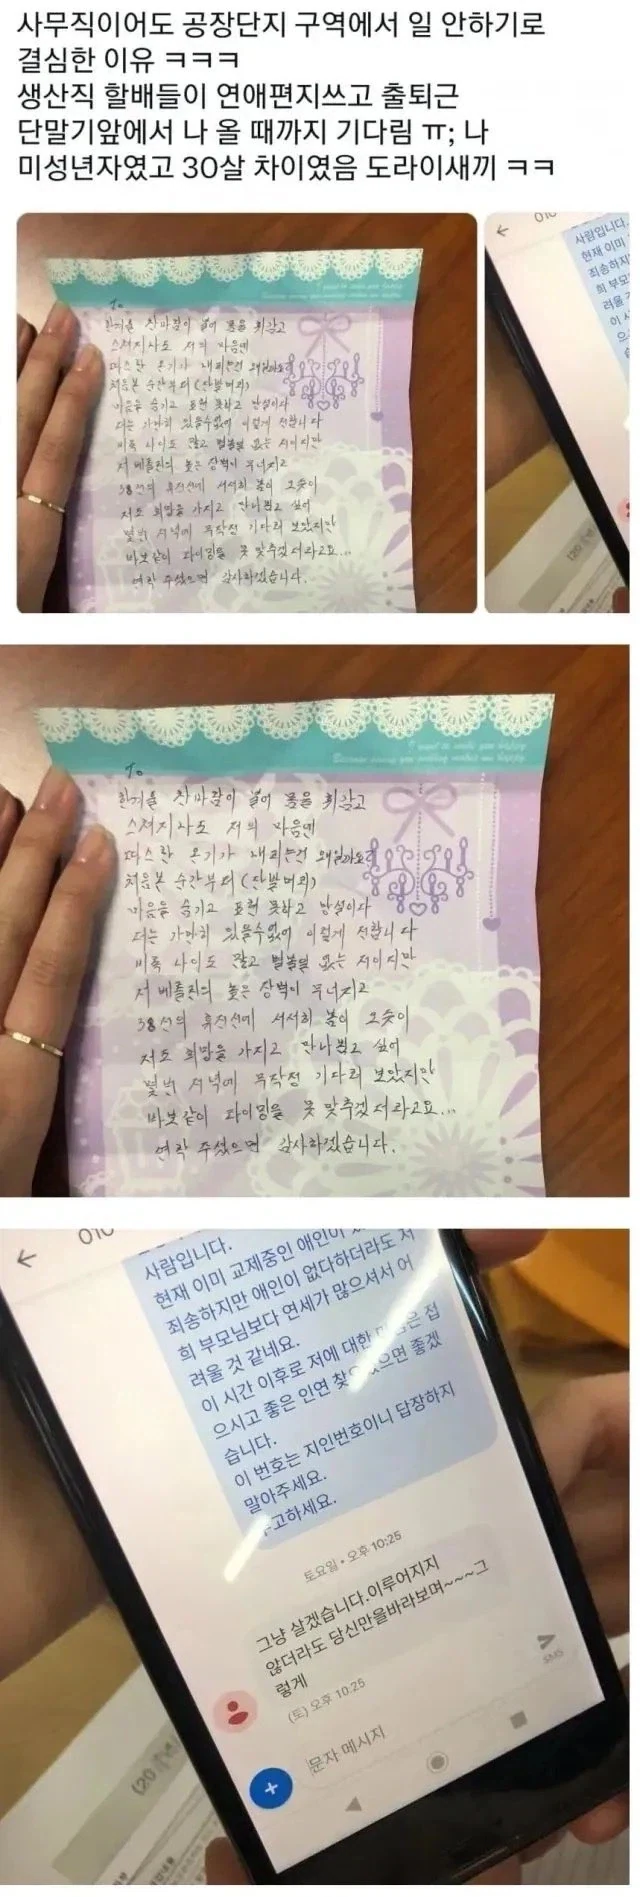 사무직이어도 공장단지 구역에서 일 안하기로
결심한 이유 ㅋㅋㅋ
생산직 할배들이 연애편지쓰고 출퇴근
단말기앞에서 나 올 때까지 기다림 ㅠ; 나
미성년자였고 30살 차이였음 도라이새끼 ㅋㅋ
010
사람입니다.
현재 이미
죄송하지
희 부모
려울 것
이 시
To
한겨울 찬바람이 불어 몸을 휘감고
스쳐지나도 저의 마음엔
따스한 온기가 내리는건 왜일까요?
처음본 순간부터 (단발머리)
마음을 숨기고 표현 못하고 망설이다
더는 가만히 있을수없어 이렇게 전합니다
비록 나이도 많고 볼품 없는 저이지만
저 베를린의 높은 장벽이 무너지고
38선의 휴전선에 서서히 봄이 오듯이
저도 희망을 가지고 만나뵙고 싶어
몇번 저녁에 무작정 기다려 보았지만
바보같이 타이밍을 못 맞추겠더라고요...
연락 주셨으면 감사하겠습니다.
I want to make you happy
To
한겨울 찬바람이 불어 몸을 휘감고
스쳐지나도 저의 마음엔
따스한 온기가 내리는건 왜일까요?
처음본 순간부터 (단발머리)
마음을 숨기고 표현 못하고 망설이다
더는 가만히 있을수없어 이렇게 전합니다
비록 나이도 많고 볼품 없는 저이지만
저 베를린의 높은 장벽이 무너지고
38선의 휴전선에 서서히 봄이 오듯이
저도 희망을 가지고 만나뵙고 싶어
몇번 저녁에 무작정 기다려 보았지만
바보같이 타이밍을 못 맞추겠더라고요...
연락 주셨으면 감사하겠습니다.
010
사람입니다.
현재 이미 교제중인 애인이
죄송하지만 애인이 없다하더라도 저
희 부모님보다 연세가 많으셔서 어
려울 것 같네요.
이 시간 이후로 저에 대한 마음은 접
으시고 좋은 인연 찾으셨으면 좋겠
습니다.
이 번호는 지인번호이니 답장하지
말아주세요.
수고하세요.
토요일 • 오후 10:25
그냥 살겠습니다.이루어지지
않더라도 당신만을바라보며~~~그
렇게
(토) 오후 10:25
문자 메시지
SMS